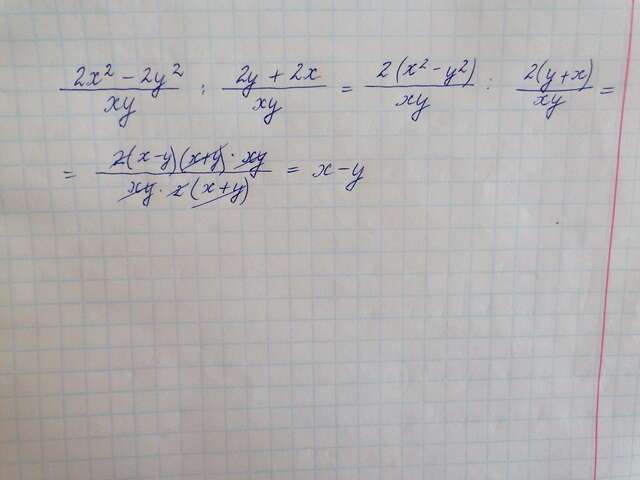 (2x² - 2y²)/(xy) : (2y + 2x)/(xy) = (2(x² - y²))/(xy) : (2(y + x))/(xy) =
= (2(x - y)(x + y) · xy)/(xy · 2(x + y)) = x - y